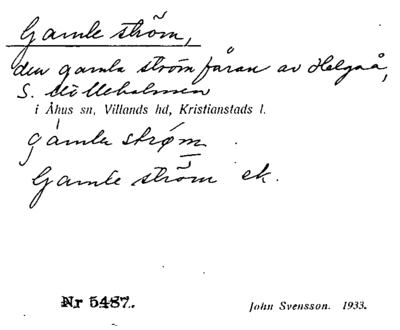 Gamle ström,
den gamla strömfåran av Helgeå,
S. Mölleholmen
i Åhus sn, Villands hd, Kristianstads l.
gàmla strøm
Gamle ström ek.
Nr 5487.
John Svensson. 1933.